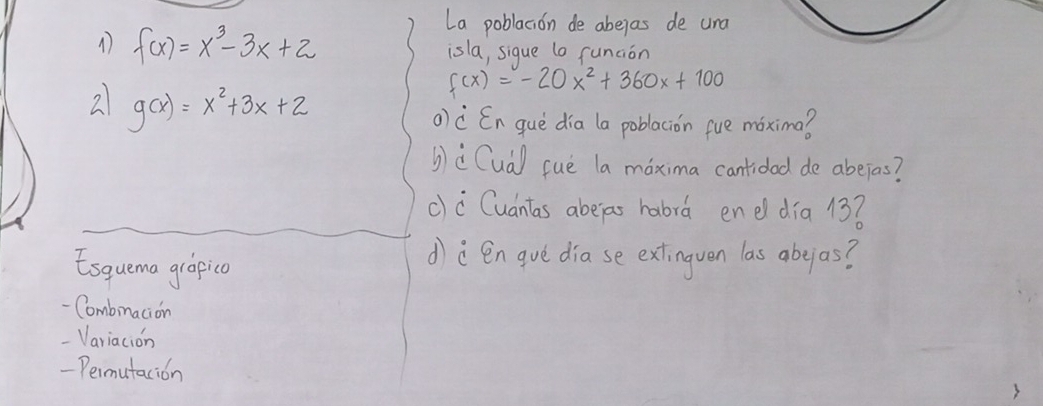 1) f(x) = x³ - 3x + 2
2) g(x) = x² + 3x + 2
Esquema gráfico
- Combinación
- Variación
- Permutación
La población de abejas de una
isla, sigue la función
f(x) = - 20x² + 360x + 100
a) ¿En qué día la población fue máxima?
b) ¿Cuál fué la máxima cantidad de abejas?
c) ¿Cuántas abejas habrá en el día 13?
d) ¿En qué día se extinguen las abejas?